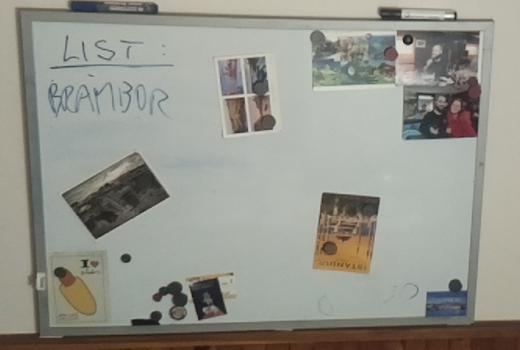 LIST:
BRAMBOR
I ♥
ISTANBUL